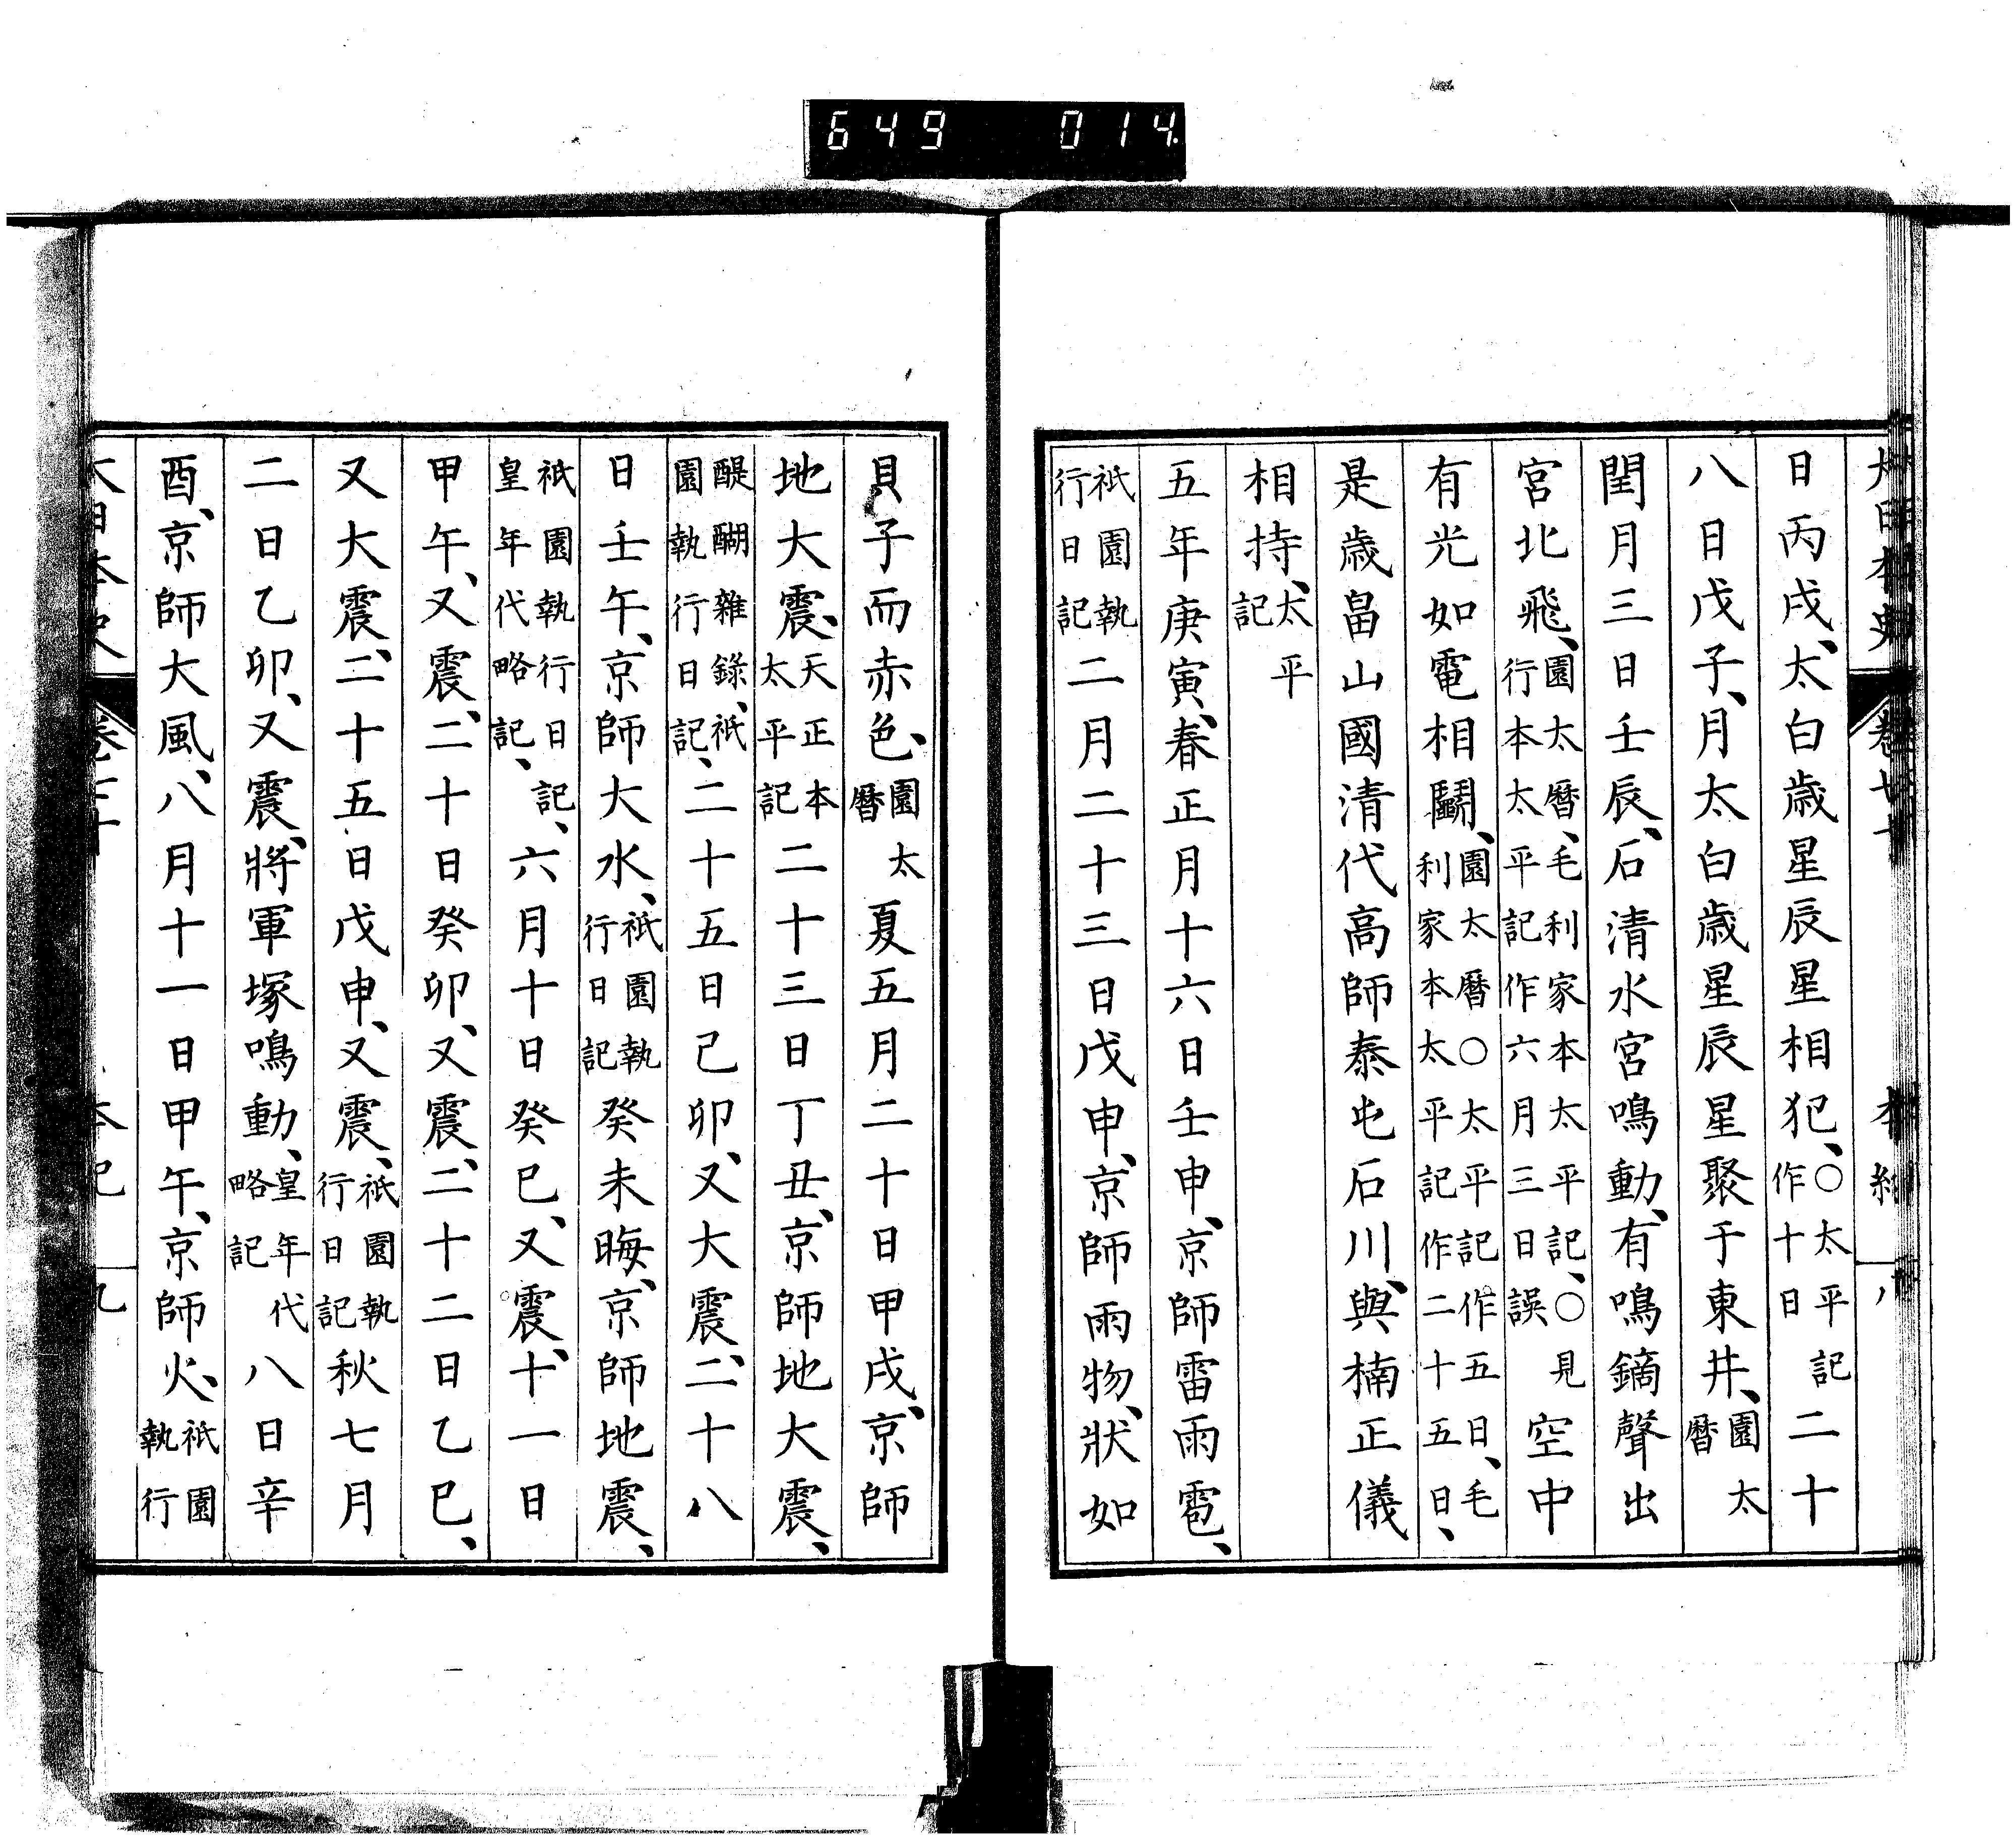 649 014
大日本史 卷七十 本紀 八
日丙戌、太白歲星辰星相犯、○太平記作十日二十
八日戊子、月太白歲星辰星聚于東井、園太曆
閏月三日壬辰、石清水宮鳴動、有鳴鏑聲出
宮北飛、園太曆、毛利家本太平記、○見行本太平記作六月三日誤空中
有光如電相鬪、園太曆○太平記作五日、毛利家本太平記作二十五日、
是歲畠山國清代高師泰屯石川、與楠正儀
相持、太平記
五年庚寅、春正月十六日壬申、京師雷雨雹、
祇園執行日記二月二十三日戊申、京師雨物、狀如
貝子而赤色、園太曆夏五月二十日甲戌、京師
地大震、天正本太平記二十三日丁丑、京師地大震、
醍醐雜錄、祇園執行日記、二十五日己卯、又大震、二十八
日壬午、京師大水、祇園執行日記癸未晦、京師地震、
祇園執行日記、皇年代略記、六月十日癸巳、又震、十一日
甲午、又震、二十日癸卯、又震、二十二日乙巳、
又大震、二十五日戊申、又震、祇園執行日記秋七月
二日乙卯、又震、將軍塚鳴動、皇年代略記八日辛
酉、京師大風、八月十一日甲午、京師火、祇園執行
大日本史 卷七十 本紀 九